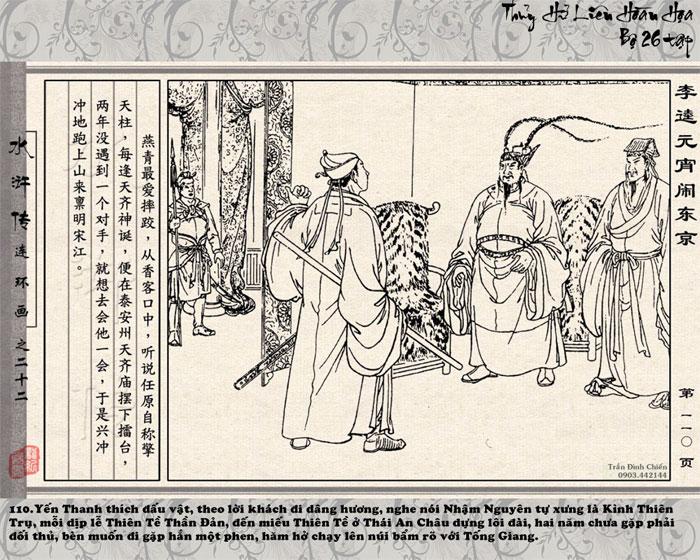 Thủy Hử Liên Hoàn Họa
Bộ 26 tập
李逵元宵闹东京
第一一〇页
燕青最爱摔跤，从香客口中，听说任原自称擎
天柱，每逢天齐神诞，便在泰安州天齐庙摆下擂台，
两年没遇到一个对手，就想去会他一会，于是兴冲
冲地跑上山来禀明宋江。
水浒传连环画之二十二
Trần Đình Chiến
0903.442144
110.Yến Thanh thích đấu vật, theo lời khách đi dâng hương, nghe nói Nhậm Nguyên tự xưng là Kình Thiên
Trụ, mỗi dịp lễ Thiên Tề Thần Đản, đến miếu Thiên Tề ở Thái An Châu dựng lôi đài, hai năm chưa gặp phải
đối thủ, bèn muốn đi gặp hắn một phen, hăm hở chạy lên núi bẩm rõ với Tống Giang.